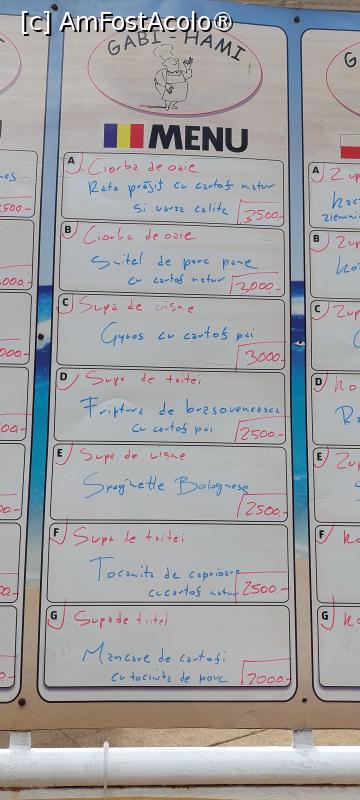 [c] AmFostAcolo®
GABI-HAMI
MENU
A Ciorba de oaie
Rata prăjit cu cartof natur
si varza calite
3500.-
B Ciorba de oaie
Snitel de porc pane
cu cartof natur
3000.-
C Supa de visne
Gyros cu cartof pai
3000.-
D Supa de taitei
Friptura de brasoveneasca
cu cartof pai
2500.-
E Supa de visne
Spaghette Bolognese
2500.-
F Supa de taitei
Tocanita de capioara
cu cartof natur
2500.-
G Supa de tiitei
Mancare de cartofi
cu tocanita de porc
2000.-